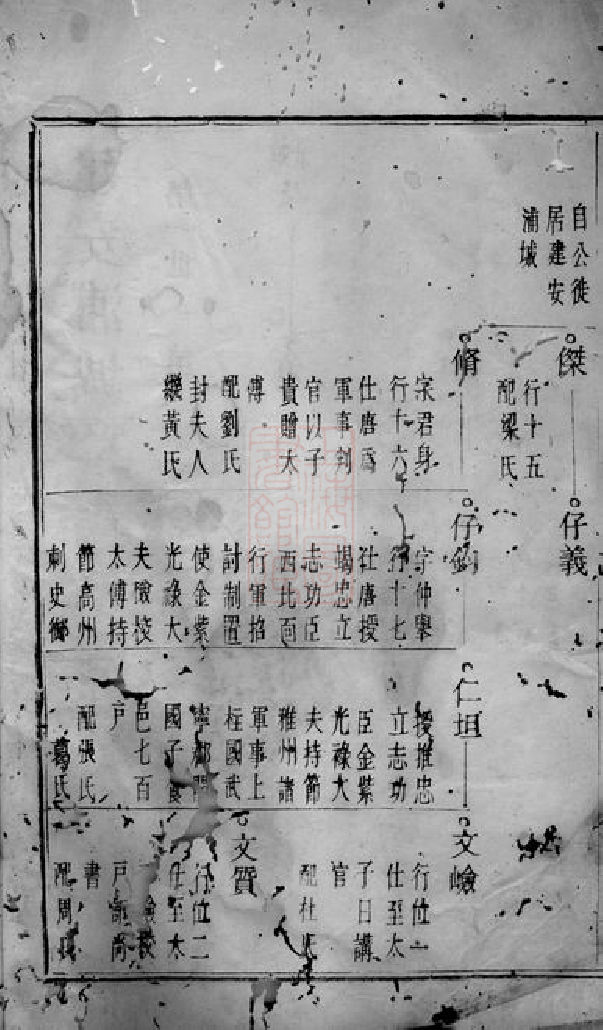 自公徙
居建安
浦城
傑
行十五
配梁氏
脩
字君身
行十六
仕唐為
軍事判
官以子
貴贈太
傅
配劉氏
封夫人
繼黃氏
仔義
仔鈞
字仲舉
行十七
仕唐授
竭忠立
志功臣
西北面
行軍招
討制置
使金紫
光祿大
夫檢校
太傅持
節高州
刺史鄉
仁坦
授推忠
立志功
臣金紫
光祿大
夫持節
雅州諸
軍事上
柱國武
寧郡開
國子食
邑七百
戶
配張氏
葛氏
文嶮
行位一
仕至太
子日講
官
配杜氏
文質
行位二
仕至太
檢校
戶部尚
書
配周氏